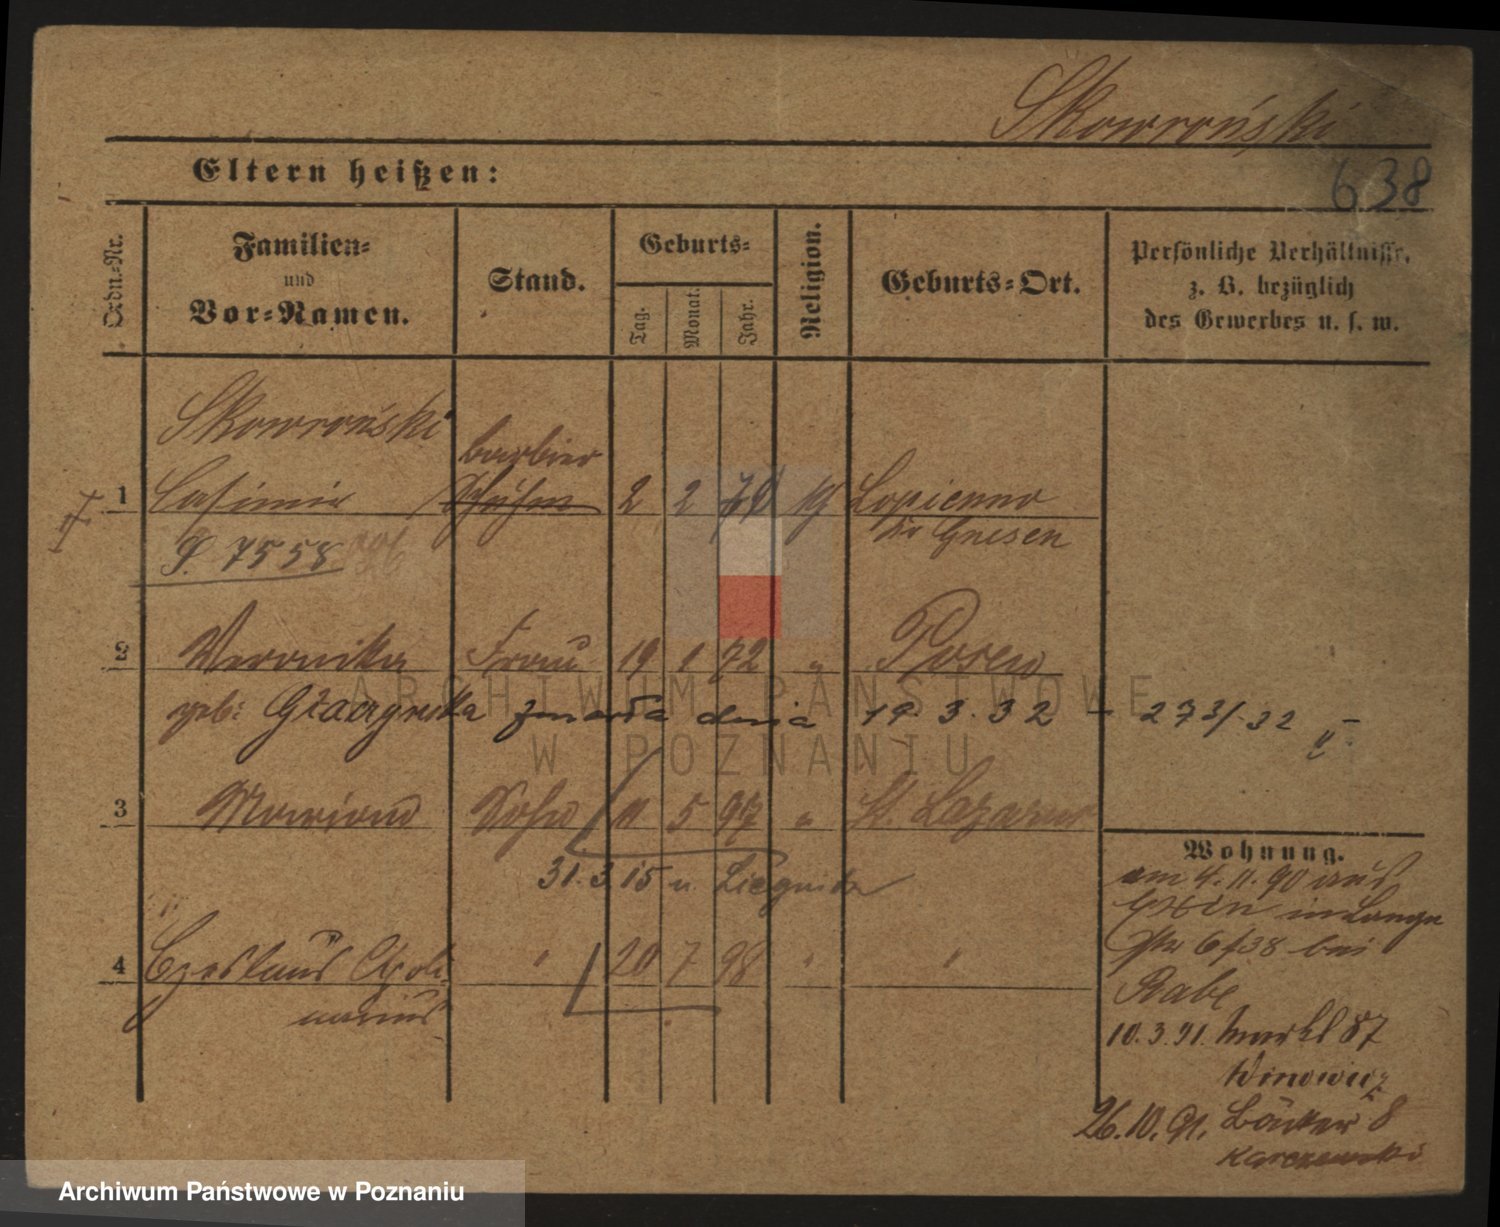 Skowroński
638
Eltern heißen:
Ordn.-Nr.
Familien-
und
Vor-Namen.
Stand.
Geburts-
Tag.
Monat.
Jahr.
Religion.
Geburts-Ort.
Persönliche Verhältnisse,
z. B. bezüglich
des Gewerbes u. s. w.
Skowroński
barbier
1 Casimir 2 2 70 Lopienno
Gnesen
P. 7558
2 Veronika Frau 19 1 72 " Posen
geb: zmarła dnia 19.3.32 - 273/32
3 Marian Sohn 11 5 97 " St. Lazarus
31.3.15 n. Liegnitz
4 Czeslaus Apoli- " 20 7 98 " "
narius
Wohnung.
am 4.11.90 aus
Exin in Lange
Str 6/38 bei
Rabe
10.3.91. Markt 87
26.10.91. Bäcker 8
Karczewski
ARCHIWUM PAŃSTWOWE
W POZNANIU
Archiwum Państwowe w Poznaniu